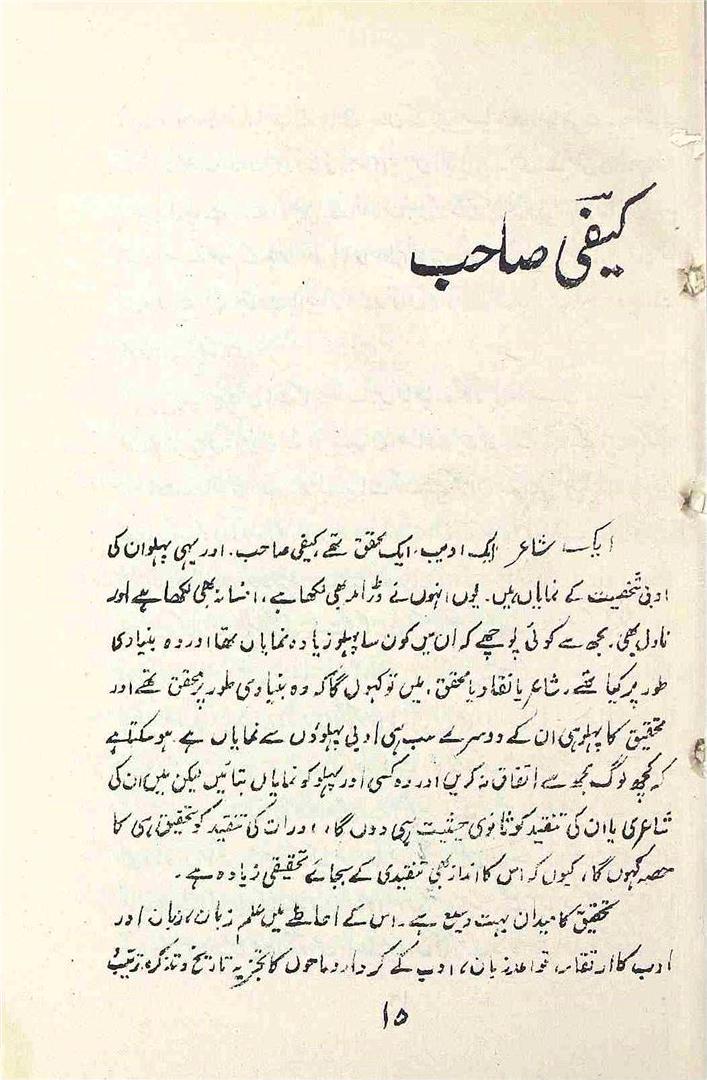 کیفی صاحب
ایک شاعر ایک ادیب، ایک محقق تھے کیفی صاحب۔ اور یہی پہلو ان کی
ادبی شخصیت کے نمایاں ہیں۔ یوں انہوں نے ڈرامہ بھی لکھا ہے، افسانہ بھی لکھا ہے اور
ناول بھی۔ مجھ سے کوئی پوچھے کہ ان میں کون سا پہلو زیادہ نمایاں تھا اور وہ بنیادی
طور پر کیا تھے، شاعر یا نقاد یا محقق، میں تو کہوں گا کہ وہ بنیادی طور پر محقق تھے اور
تحقیق کا پہلو ہی ان کے دوسرے سب ہی ادبی پہلوؤں سے نمایاں ہے۔ ہو سکتا ہے
کہ کچھ لوگ مجھ سے اتفاق نہ کریں اور وہ کسی اور پہلو کو نمایاں بتائیں لیکن میں ان کی
شاعری یا ان کی تنقید کو ثانوی حیثیت ہی دوں گا، اور ان کی تنقید کو تحقیق ہی کا
حصہ کہوں گا، کیوں کہ اس کا انداز بھی تنقیدی کے بجائے تحقیقی زیادہ ہے۔
تحقیق کا میدان بہت وسیع ہے۔ اس کے احاطے میں علم زبان، زبان اور
ادب کا ارتقاء، قواعد زبان، ادب کے کردار و ماحول کا تجزیہ تاریخ و تذکرہ، ترتیب
۱۵